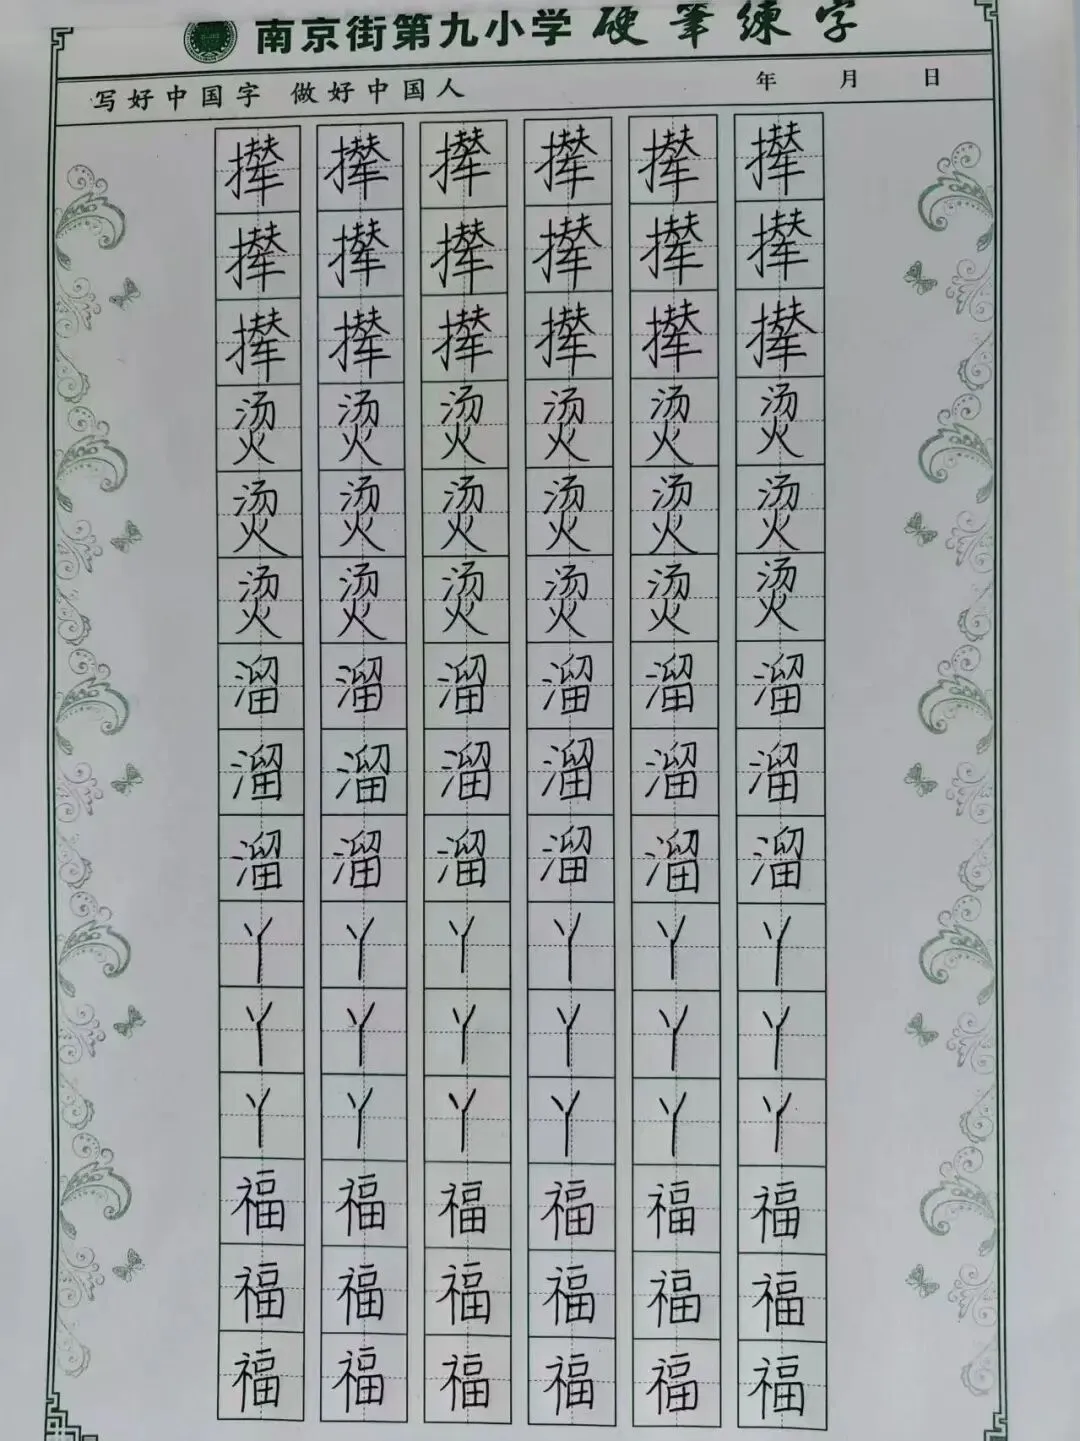 南京街第九小学 硬筆練字
写好中国字 做好中国人 年 月 日
撵 撵 撵 撵 撵 撵
撵 撵 撵 撵 撵 撵
撵 撵 撵 撵 撵 撵
烫 烫 烫 烫 烫 烫
烫 烫 烫 烫 烫 烫
烫 烫 烫 烫 烫 烫
溜 溜 溜 溜 溜 溜
溜 溜 溜 溜 溜 溜
溜 溜 溜 溜 溜 溜
丫 丫 丫 丫 丫 丫
丫 丫 丫 丫 丫 丫
丫 丫 丫 丫 丫 丫
福 福 福 福 福 福
福 福 福 福 福 福
福 福 福 福 福 福